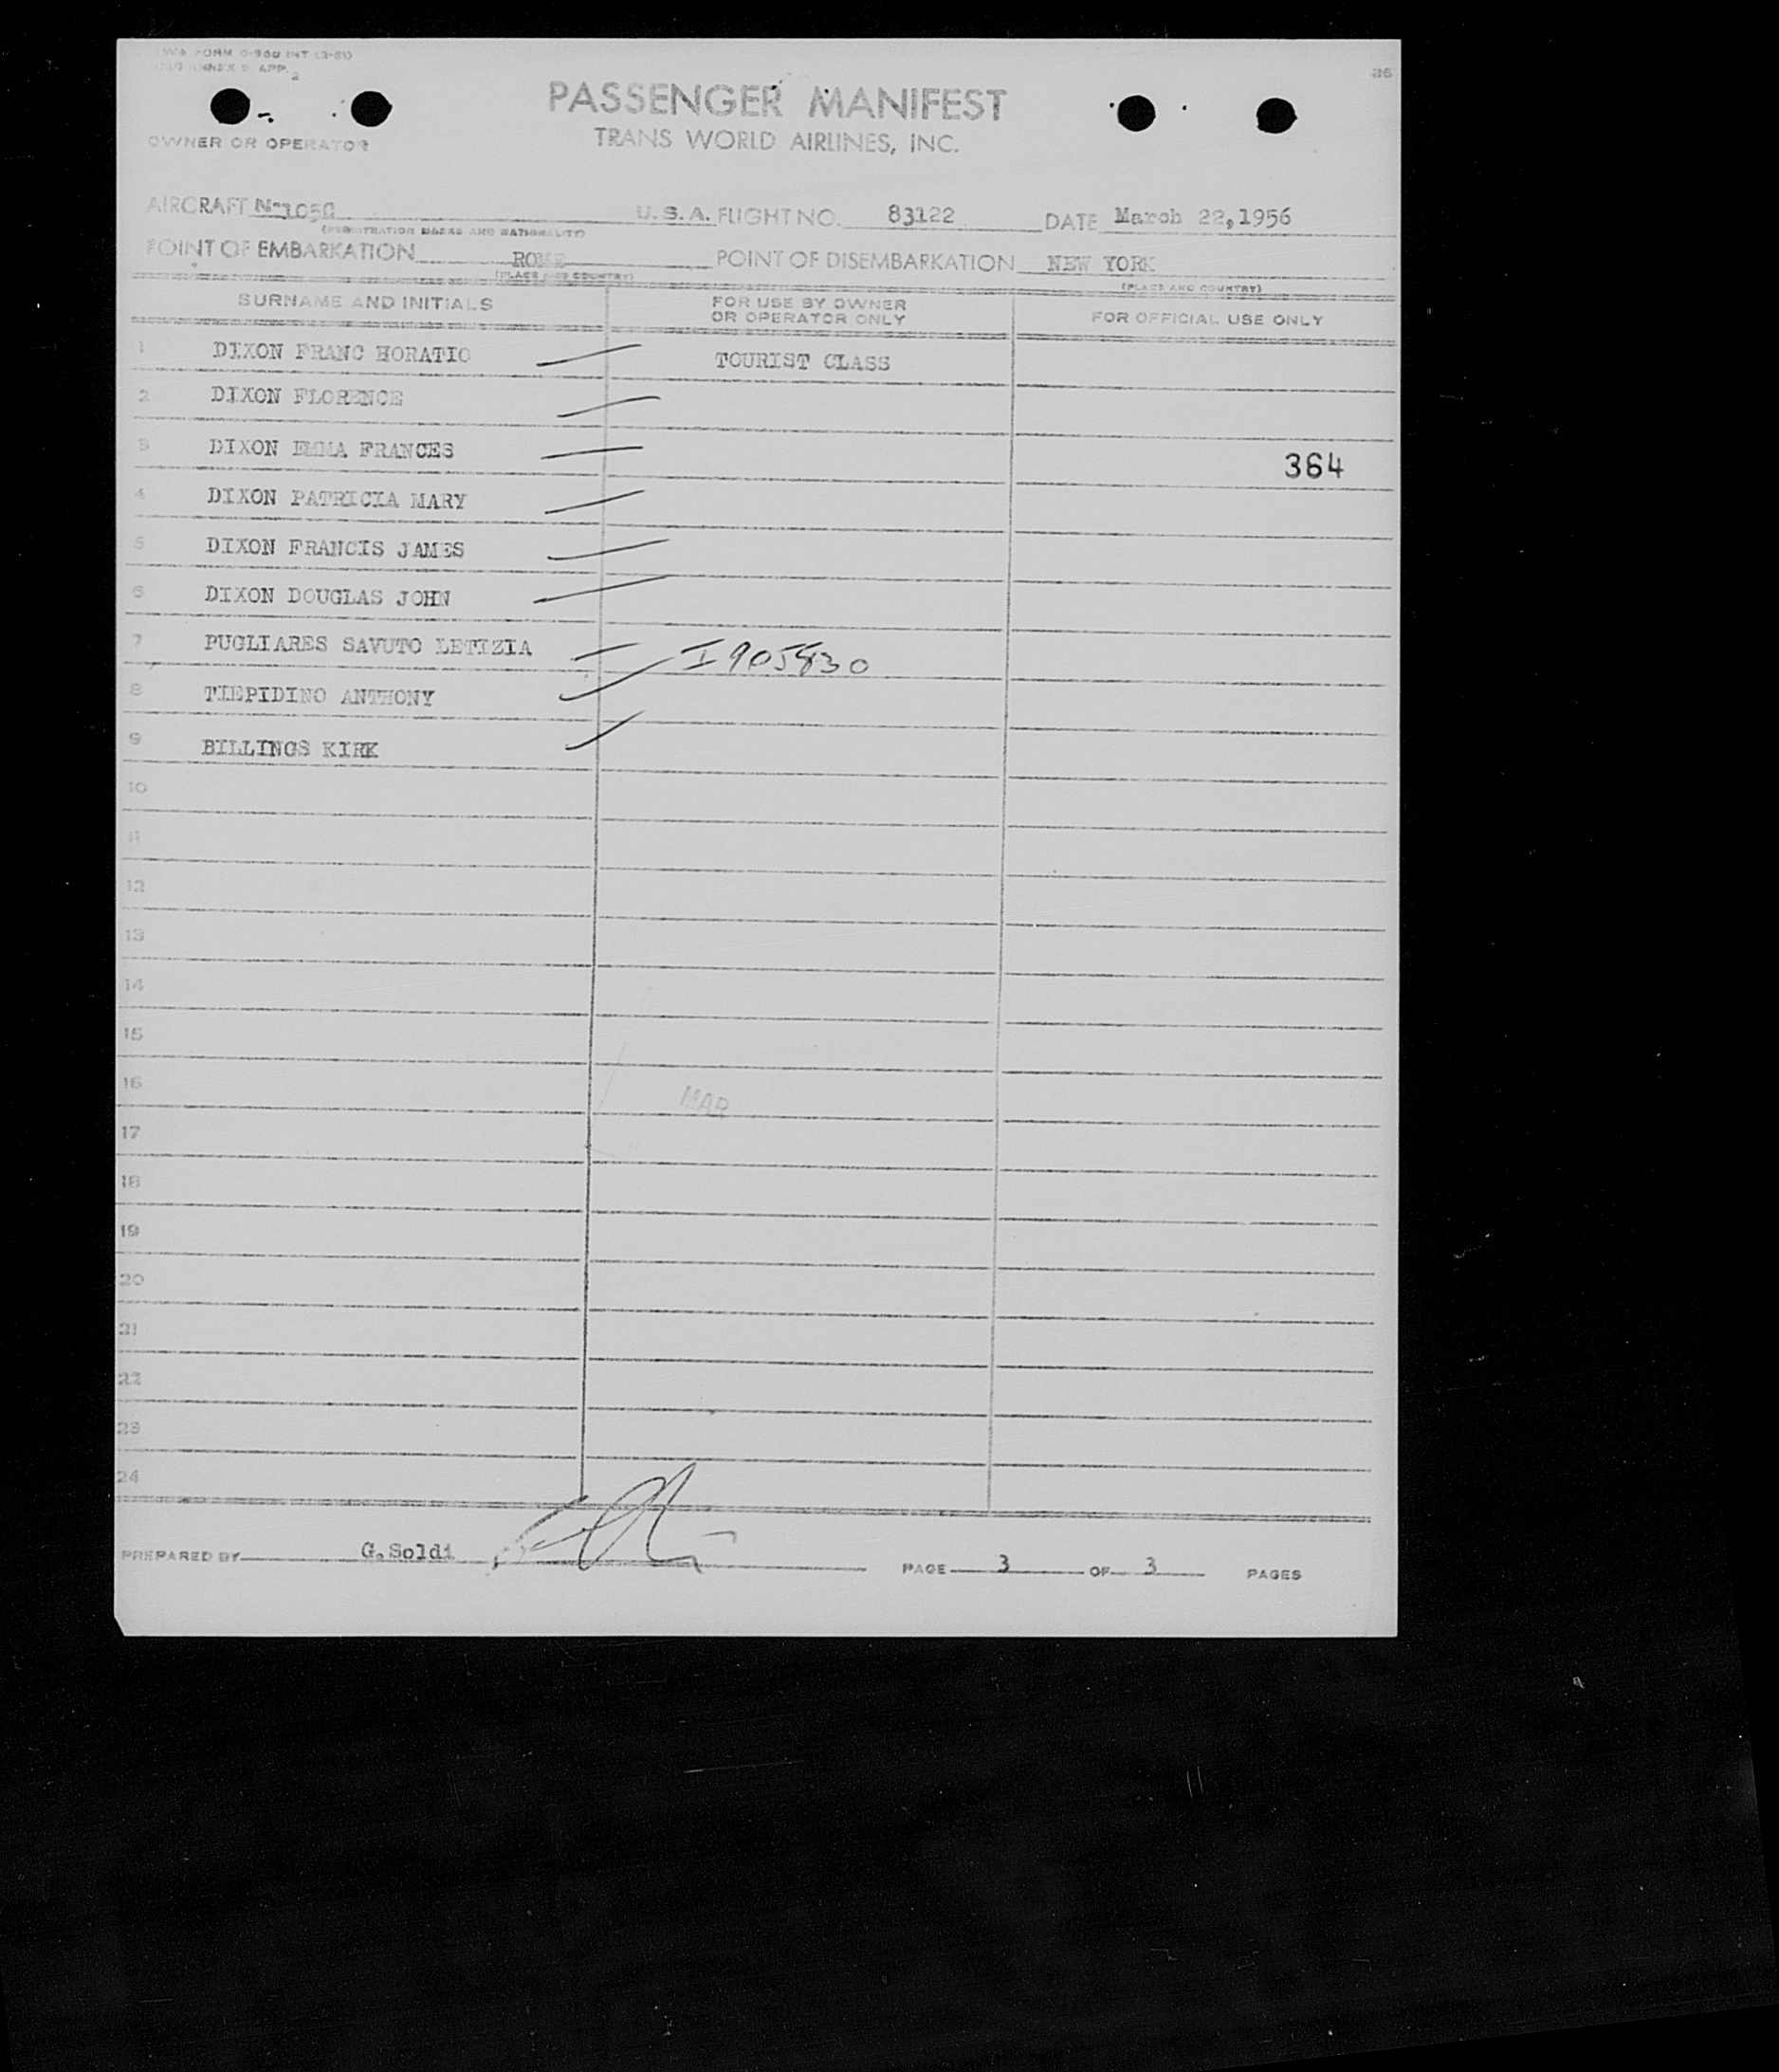 FORM 0-960 INT (3-51)
ANNEX 9 APP. 2
26
PASSENGER MANIFEST
TRANS WORLD AIRLINES, INC.
OWNER OR OPERATOR
AIRCRAFT U.S.A. FLIGHT NO. 83122 DATE March 22,1956
(REGISTRATION MARKS AND NATIONALITY)
POINT OF EMBARKATION ROME POINT OF DISEMBARKATION NEW YORK
(PLACE AND COUNTRY) (PLACE AND COUNTRY)
SURNAME AND INITIALS FOR USE BY OWNER OR OPERATOR ONLY FOR OFFICIAL USE ONLY
1 DIXON FRANC HORATIO TOURIST CLASS
2 DIXON FLORENCE
3 DIXON EMMA FRANCES 364
4 DIXON PATRICIA MARY
5 DIXON FRANCIS JAMES
6 DIXON DOUGLAS JOHN
7 PUGLIARES SAVUTO LETIZIA I905830
8 TIEPIDINO ANTHONY
9 BILLINGS KIRK
10
11
12
13
14
15
16 MAR
17
18
19
20
21
22
23
24
PREPARED BY G.Soldi PAGE 3 OF 3 PAGES